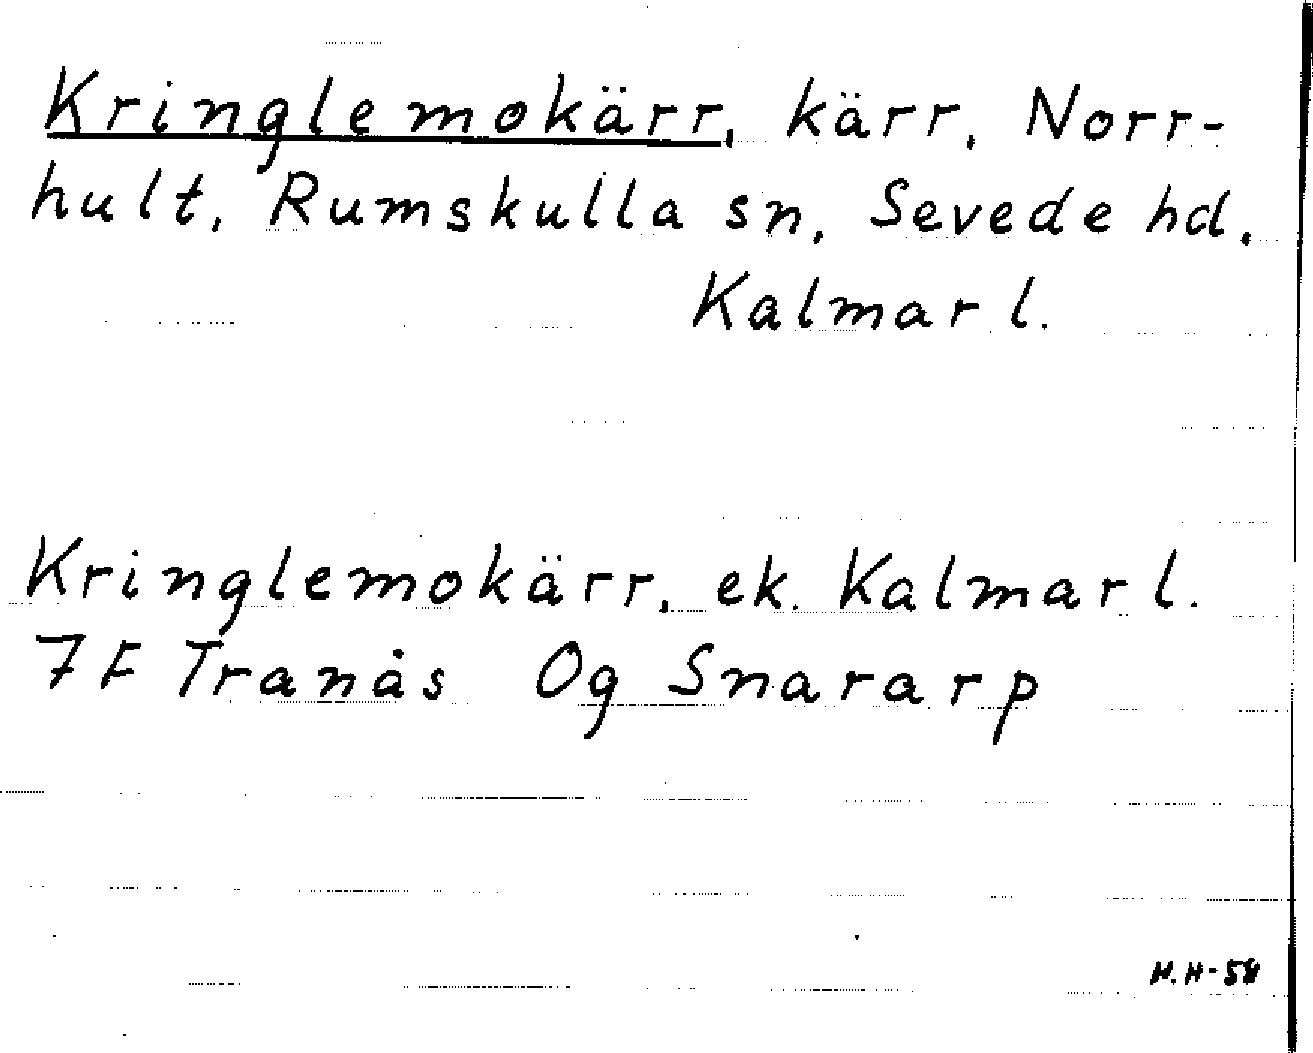 Kringlemokärr, kärr, Norr-
hult, Rumskulla sn, Sevede hd,
Kalmar l.
Kringlemokärr, ek. Kalmar l.
7F Tranås Og Snararp